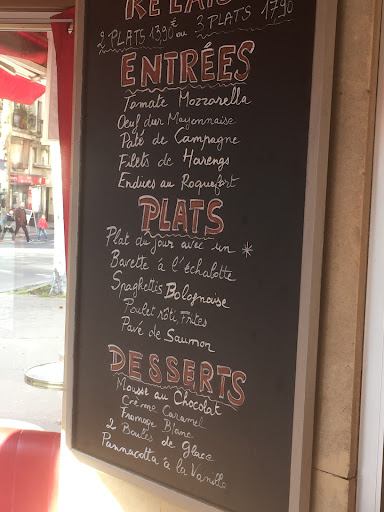 RELAIS
2 PLATS 13,90€ ou 3 PLATS 17,90
ENTRÉES
Tomate Mozzarella
Oeuf dur Mayonnaise
Pâté de Campagne
Filets de Harengs
Endives au Roquefort
PLATS
Plat du jour avec un *
Bavette à l'échalotte
Spaghettis Bolognaise
Poulet rôti, Frites
Pavé de Saumon
DESSERTS
Mousse au Chocolat
Crème Caramel
Fromage Blanc
2 Boules de Glace
Pannacotta à la Vanille